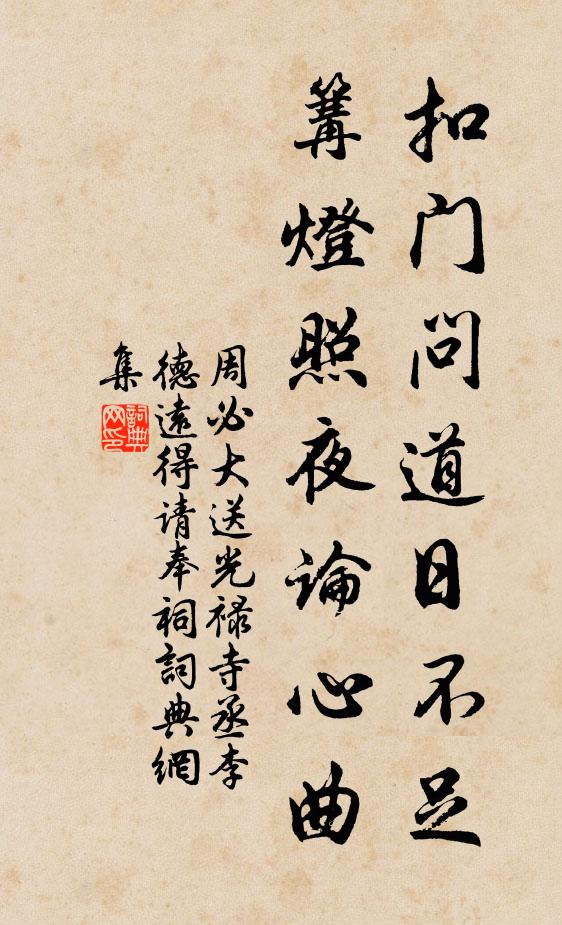 扣门问道日不足
篝燈照夜論心曲
周必大送光禄寺丞李
德遠得请奉祠詞典網
集
詞典
网印